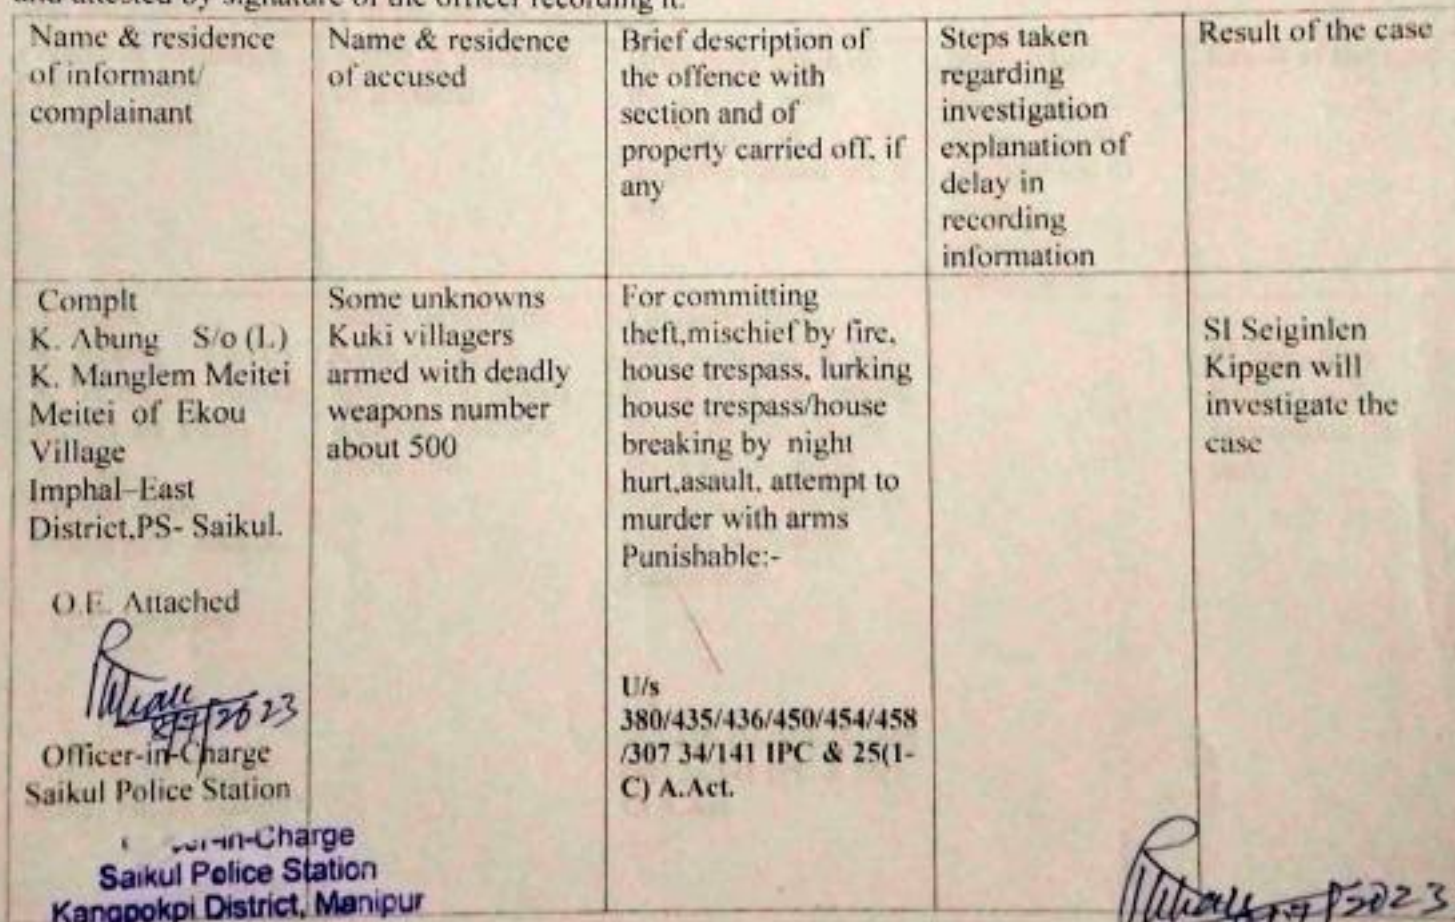 and attested by signature of the officer recording it.
Name & residence
of informant/
complainant
Name & residence
of accused
Brief description of
the offence with
section and of
property carried off, if
any
Steps taken
regarding
investigation
explanation of
delay in
recording
information
Result of the case
Complt
K. Abung S/o (L)
K. Manglem Meitei
Meitei of Ekou
Village
Imphal–East
District,PS- Saikul.
O.E. Attached
2023
Officer-in-Charge
Saikul Police Station
-in-Charge
Saikul Police Station
Kangpokpi District, Manipur
Some unknowns
Kuki villagers
armed with deadly
weapons number
about 500
For committing
theft,mischief by fire,
house trespass, lurking
house trespass/house
breaking by night
hurt,asault, attempt to
murder with arms
Punishable:-
U/s
380/435/436/450/454/458
/307 34/141 IPC & 25(1-
C) A.Act.
SI Seiginlen
Kipgen will
investigate the
case
2023